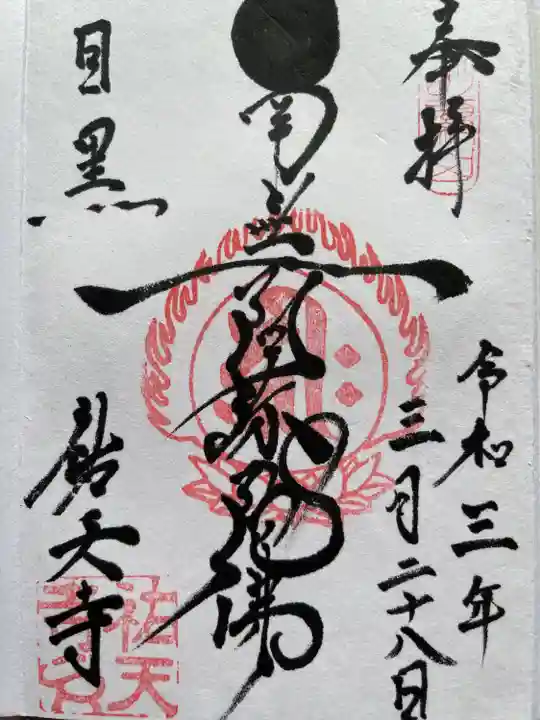 奉拝
令和三年
三月二十八日
南無阿弥陀佛
目黒
祐天寺
祐天